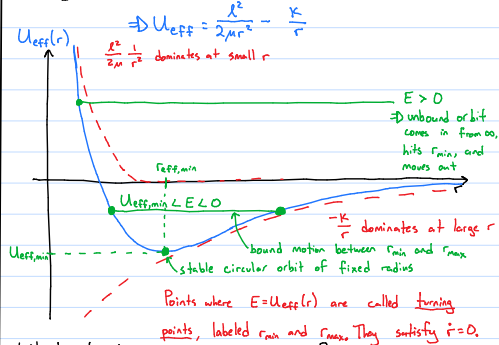 ⇒ U_eff = ℓ²/2μr² - k/r
U_eff(r)
ℓ²/2μ 1/r² dominates at small r
E > 0
⇒ unbound orbit
comes in from ∞,
hits r_min, and
moves out
r_eff,min
r
U_eff,min < E < 0
-k/r dominates at large r
bound motion between r_min and r_max
U_eff,min
stable circular orbit of fixed radius
Points where E = U_eff(r) are called turning
points, labeled r_min and r_max. They satisfy ṙ = 0.